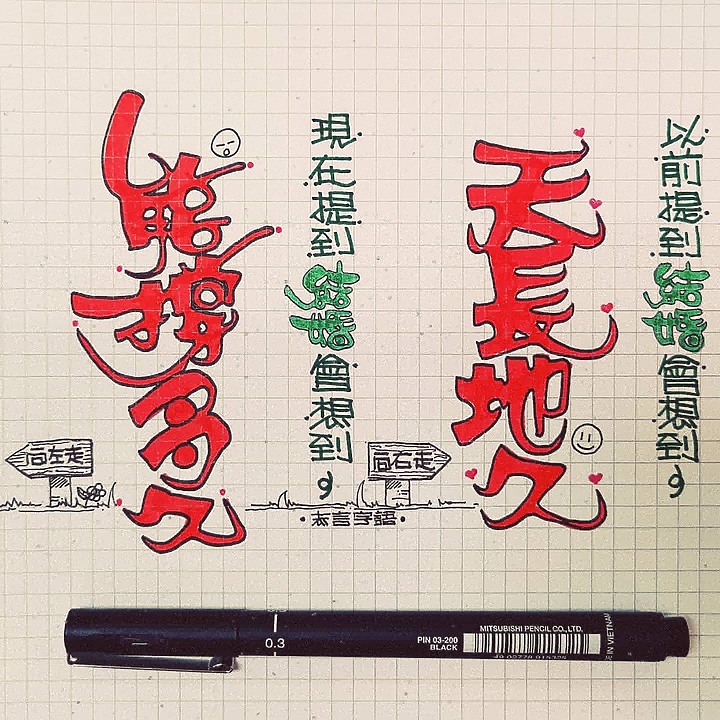 以前提到結婚會想到，
天長地久
現在提到結婚會想到，
能撐多久
向右走
向左走
0.3
PIN 03-200
BLACK
MITSUBISHI PENCIL CO.,LTD.
IN VIETNAM